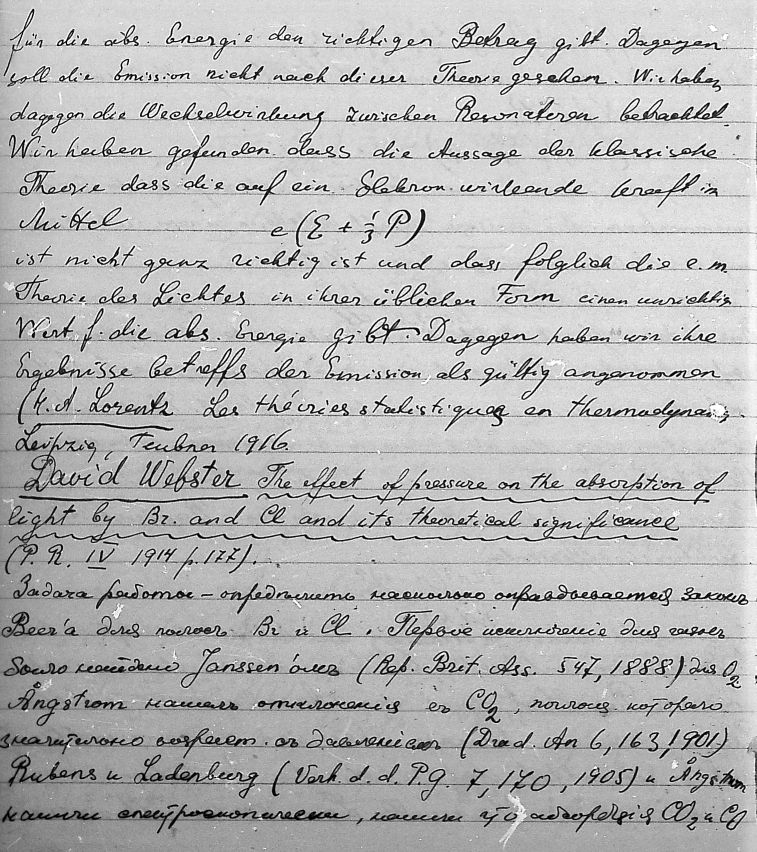 für die abs. Energie den richtigen Betrag gibt. Dagegen
soll die Emission nicht nach dieser Theorie geschehen. Wir haben
dagegen die Wechselwirkung zwischen Resonatoren betrachtet.
Wir haben gefunden dass die Aussage der klassische
Theorie dass die auf ein Elektron wirkende Kraft im
Mittel e (E + 1/3 P)
ist nicht ganz richtig ist und dass folglich die e.m.
Theorie des Lichtes in ihrer üblichen Form einen unrichtig
Wert f. die abs. Energie gibt. Dagegen haben wir ihre
Ergebnisse betreffs der Emission als gültig angenommen
(H. A. Lorentz Les théories statistiques en thermodynam.
Leipzig, Teubner 1916.
David Webster The effect of pressure on the absorption of
light by Br. and Cl and its theoretical significance
(P. R. IV 1914 p. 177).
Задача работы – определить насколько оправдывается законъ
Beer'а для полосъ Br и Cl. Первое исключение для газовъ
было найдено Janssen'омъ (Rep. Brit. Ass. 547, 1888.) для O2
Ångstrom нашелъ отклонения въ CO2, полоса которого
значительно возраст. съ давлениемъ (Drud. An 6, 163, 1901)
Rubens и Ladenburg (Verh. d. d. P. g. 7, 170, 1905) и Ångstrom
нашли спектроскопически, нашли что абсорбция CO2 и CO